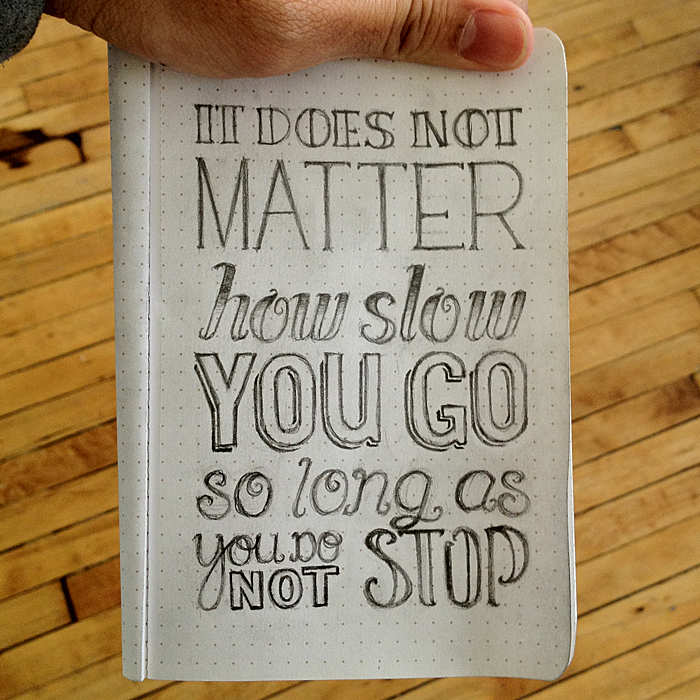 IT DOES NOT
MATTER
how slow
YOU GO
so long as
you DO
NOT STOP